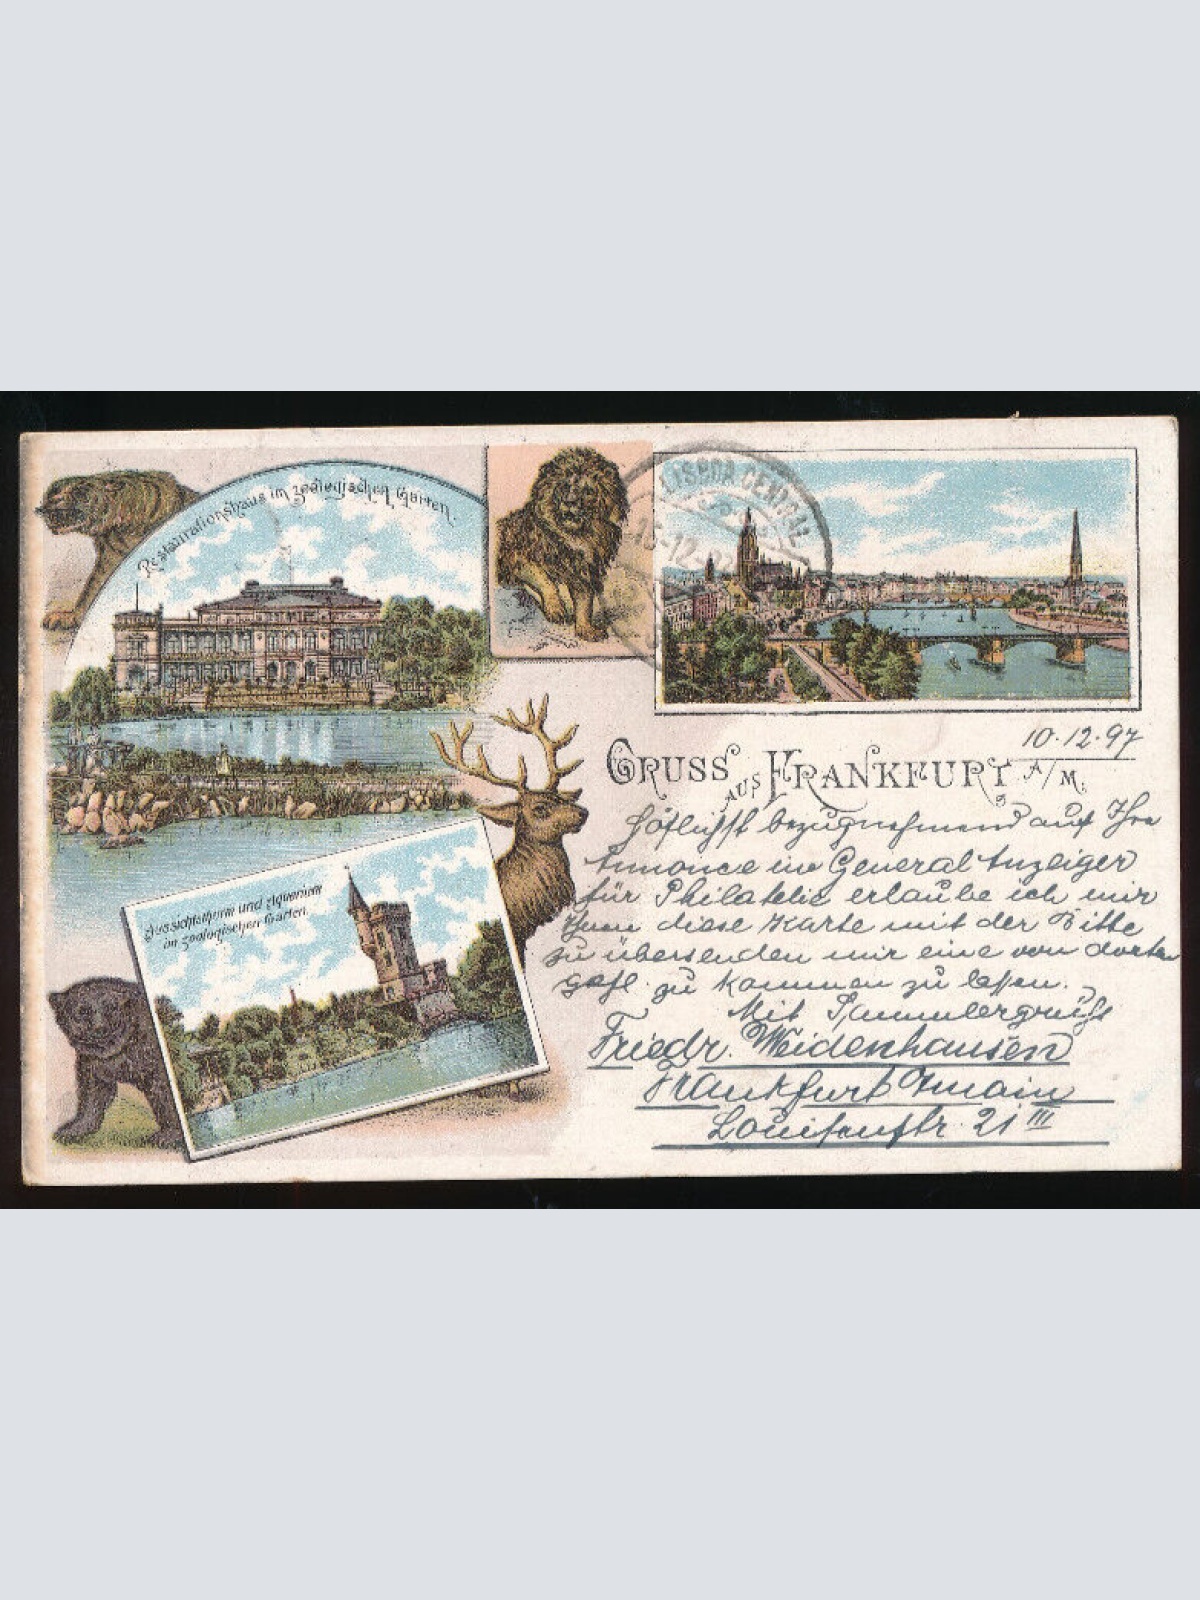 Restaurationshaus im zoologischen Garten.
LISBOA CENTRAL
Aussichtsthurm und Aquarium
im zoologischen Garten.
10.12.97
GRUSS AUS FRANKFURT A/M.
Höflichst bezugnehmend auf Ihre
Annonce im General Anzeiger
für Philatelie erlaube ich mir
Ihnen diese Karte mit der Bitte
zu übersenden mir eine von dorten
gefl. zu kommen zu lassen.
Mit Sammlergruß
Friedr. Weidenhausen
Frankfurt Main
Louisenstr. 21 III